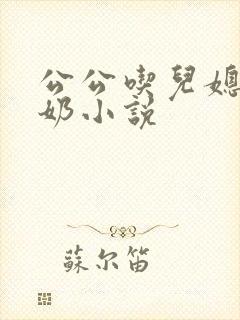 公公喫兒媳
奶小說
蘇尔笛